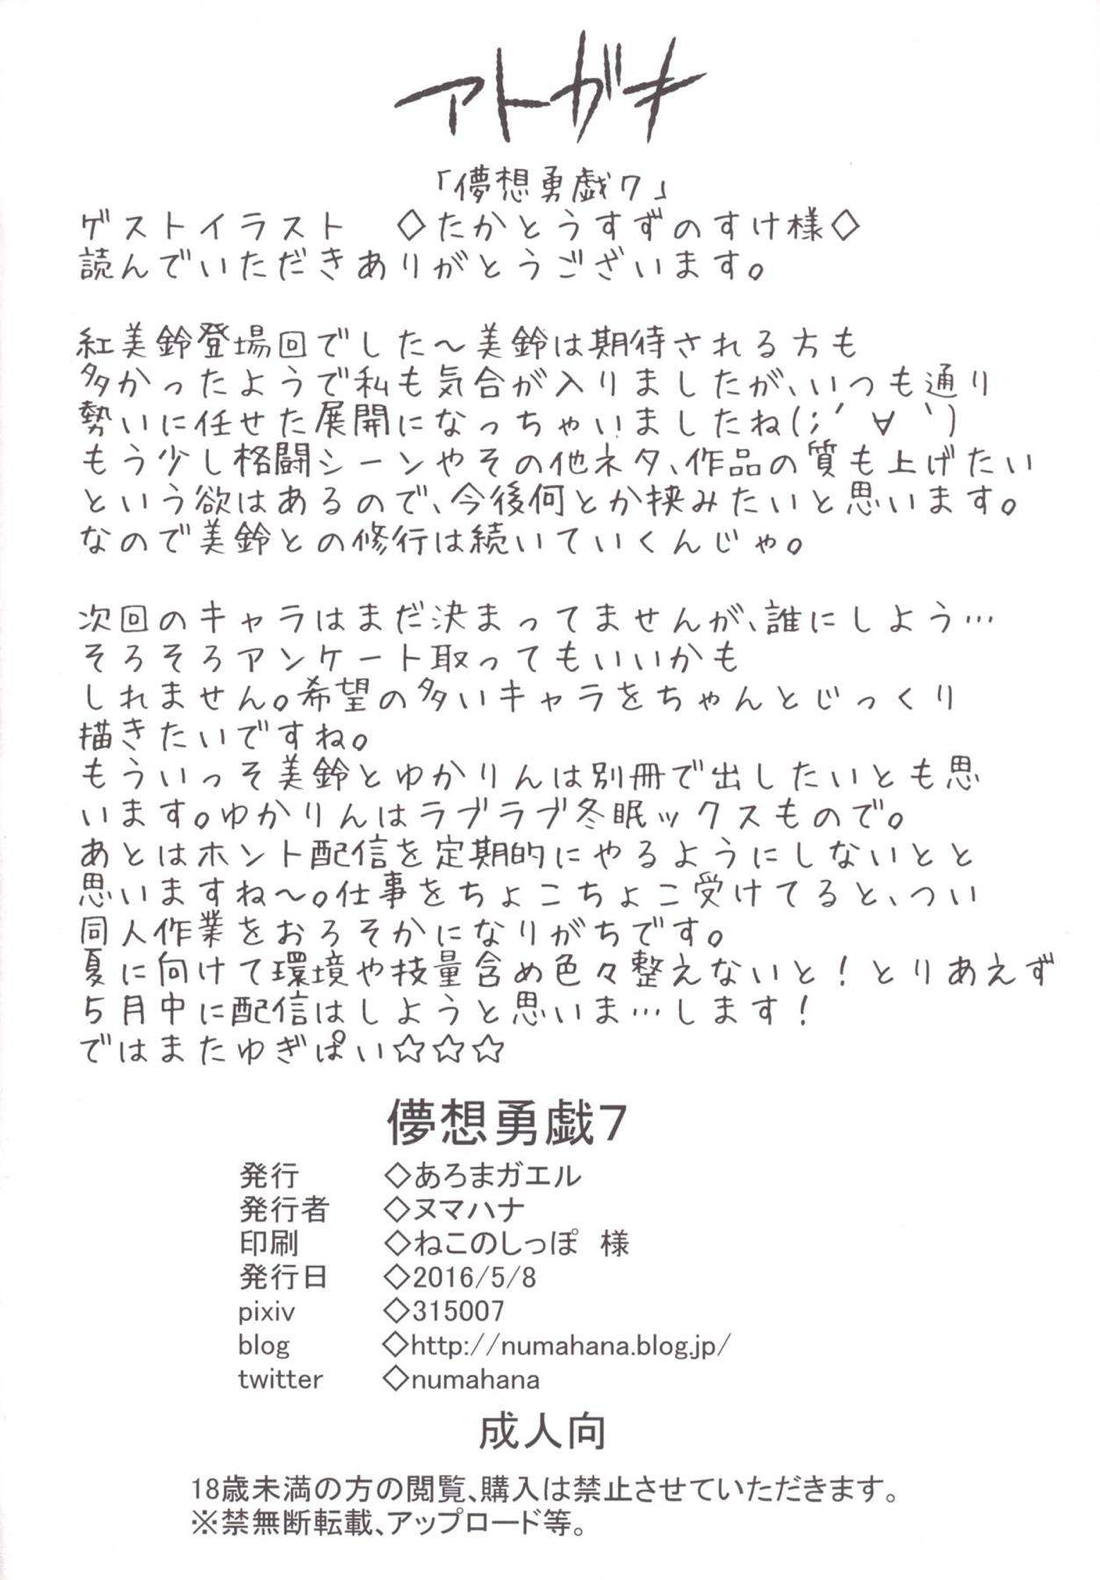 アトガキ
「儚想勇戯7」
ゲストイラスト ◇たかとうすずのすけ様◇
読んでいただきありがとうございます。
紅美鈴登場回でした～美鈴は期待される方も
多かったようで私も気合が入りましたが、いつも通り
勢いに任せた展開になっちゃいましたね(;´∀｀)
もう少し格闘シーンやその他ネタ、作品の質も上げたい
という欲はあるので、今後何とか挟みたいと思います。
なので美鈴との修行は続いていくんじゃ。
次回のキャラはまだ決まってませんが、誰にしよう…
そろそろアンケート取ってもいいかも
しれません。希望の多いキャラをちゃんとじっくり
描きたいですね。
もういっそ美鈴とゆかりんは別冊で出したいとも思
います。ゆかりんはラブラブ冬眠ックスもので。
あとはホント配信を定期的にやるようにしないとと
思いますね～。仕事をちょこちょこ受けてると、つい
同人作業をおろそかになりがちです。
夏に向けて環境や技量含め色々整えないと！とりあえず
5月中に配信はしようと思いま…します！
ではまたゆぎぱい☆☆☆
儚想勇戯7
発行 ◇あろまガエル
発行者 ◇ヌマハナ
印刷 ◇ねこのしっぽ 様
発行日 ◇2016/5/8
pixiv ◇315007
blog ◇http://numahana.blog.jp/
twitter ◇numahana
成人向
18歳未満の方の閲覧、購入は禁止させていただきます。
※禁無断転載、アップロード等。